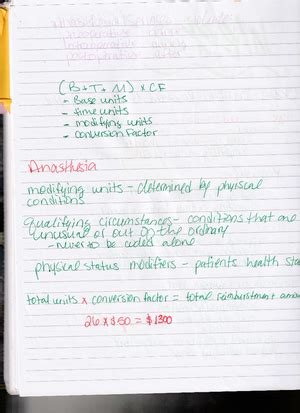 (B+T+M) x CF
- Base units
- time units
- modifying units
- conversion Factor
Anasthusia
modifying units - determined by phyiscal
conditions
Qualifying circumstances - conditions that are
unusual or out on the ordinary
- never to be coded alone
physical status modifiers - patients health sta
total units x conversion factor = total reimburstment amou
26 x $50 = $1300